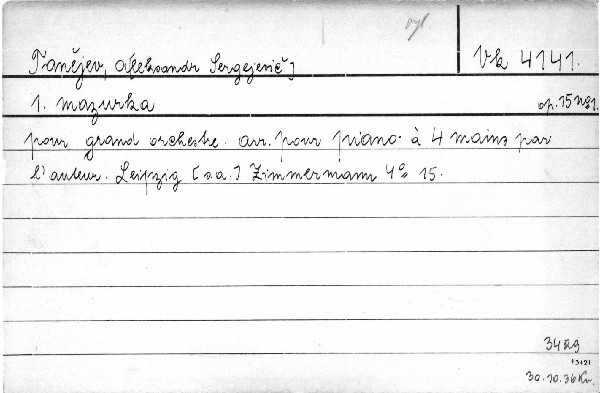 vyl.
Tanějev, A[leksandr Sergejevič] Vk 4141.
1. mazurka op. 15 No 1.
pour grand orchestre. arr. pour piano à 4 mains par
l'auteur. Leipzig [s.a.] Zimmermann 4° 15.
30.10.36 Kr.